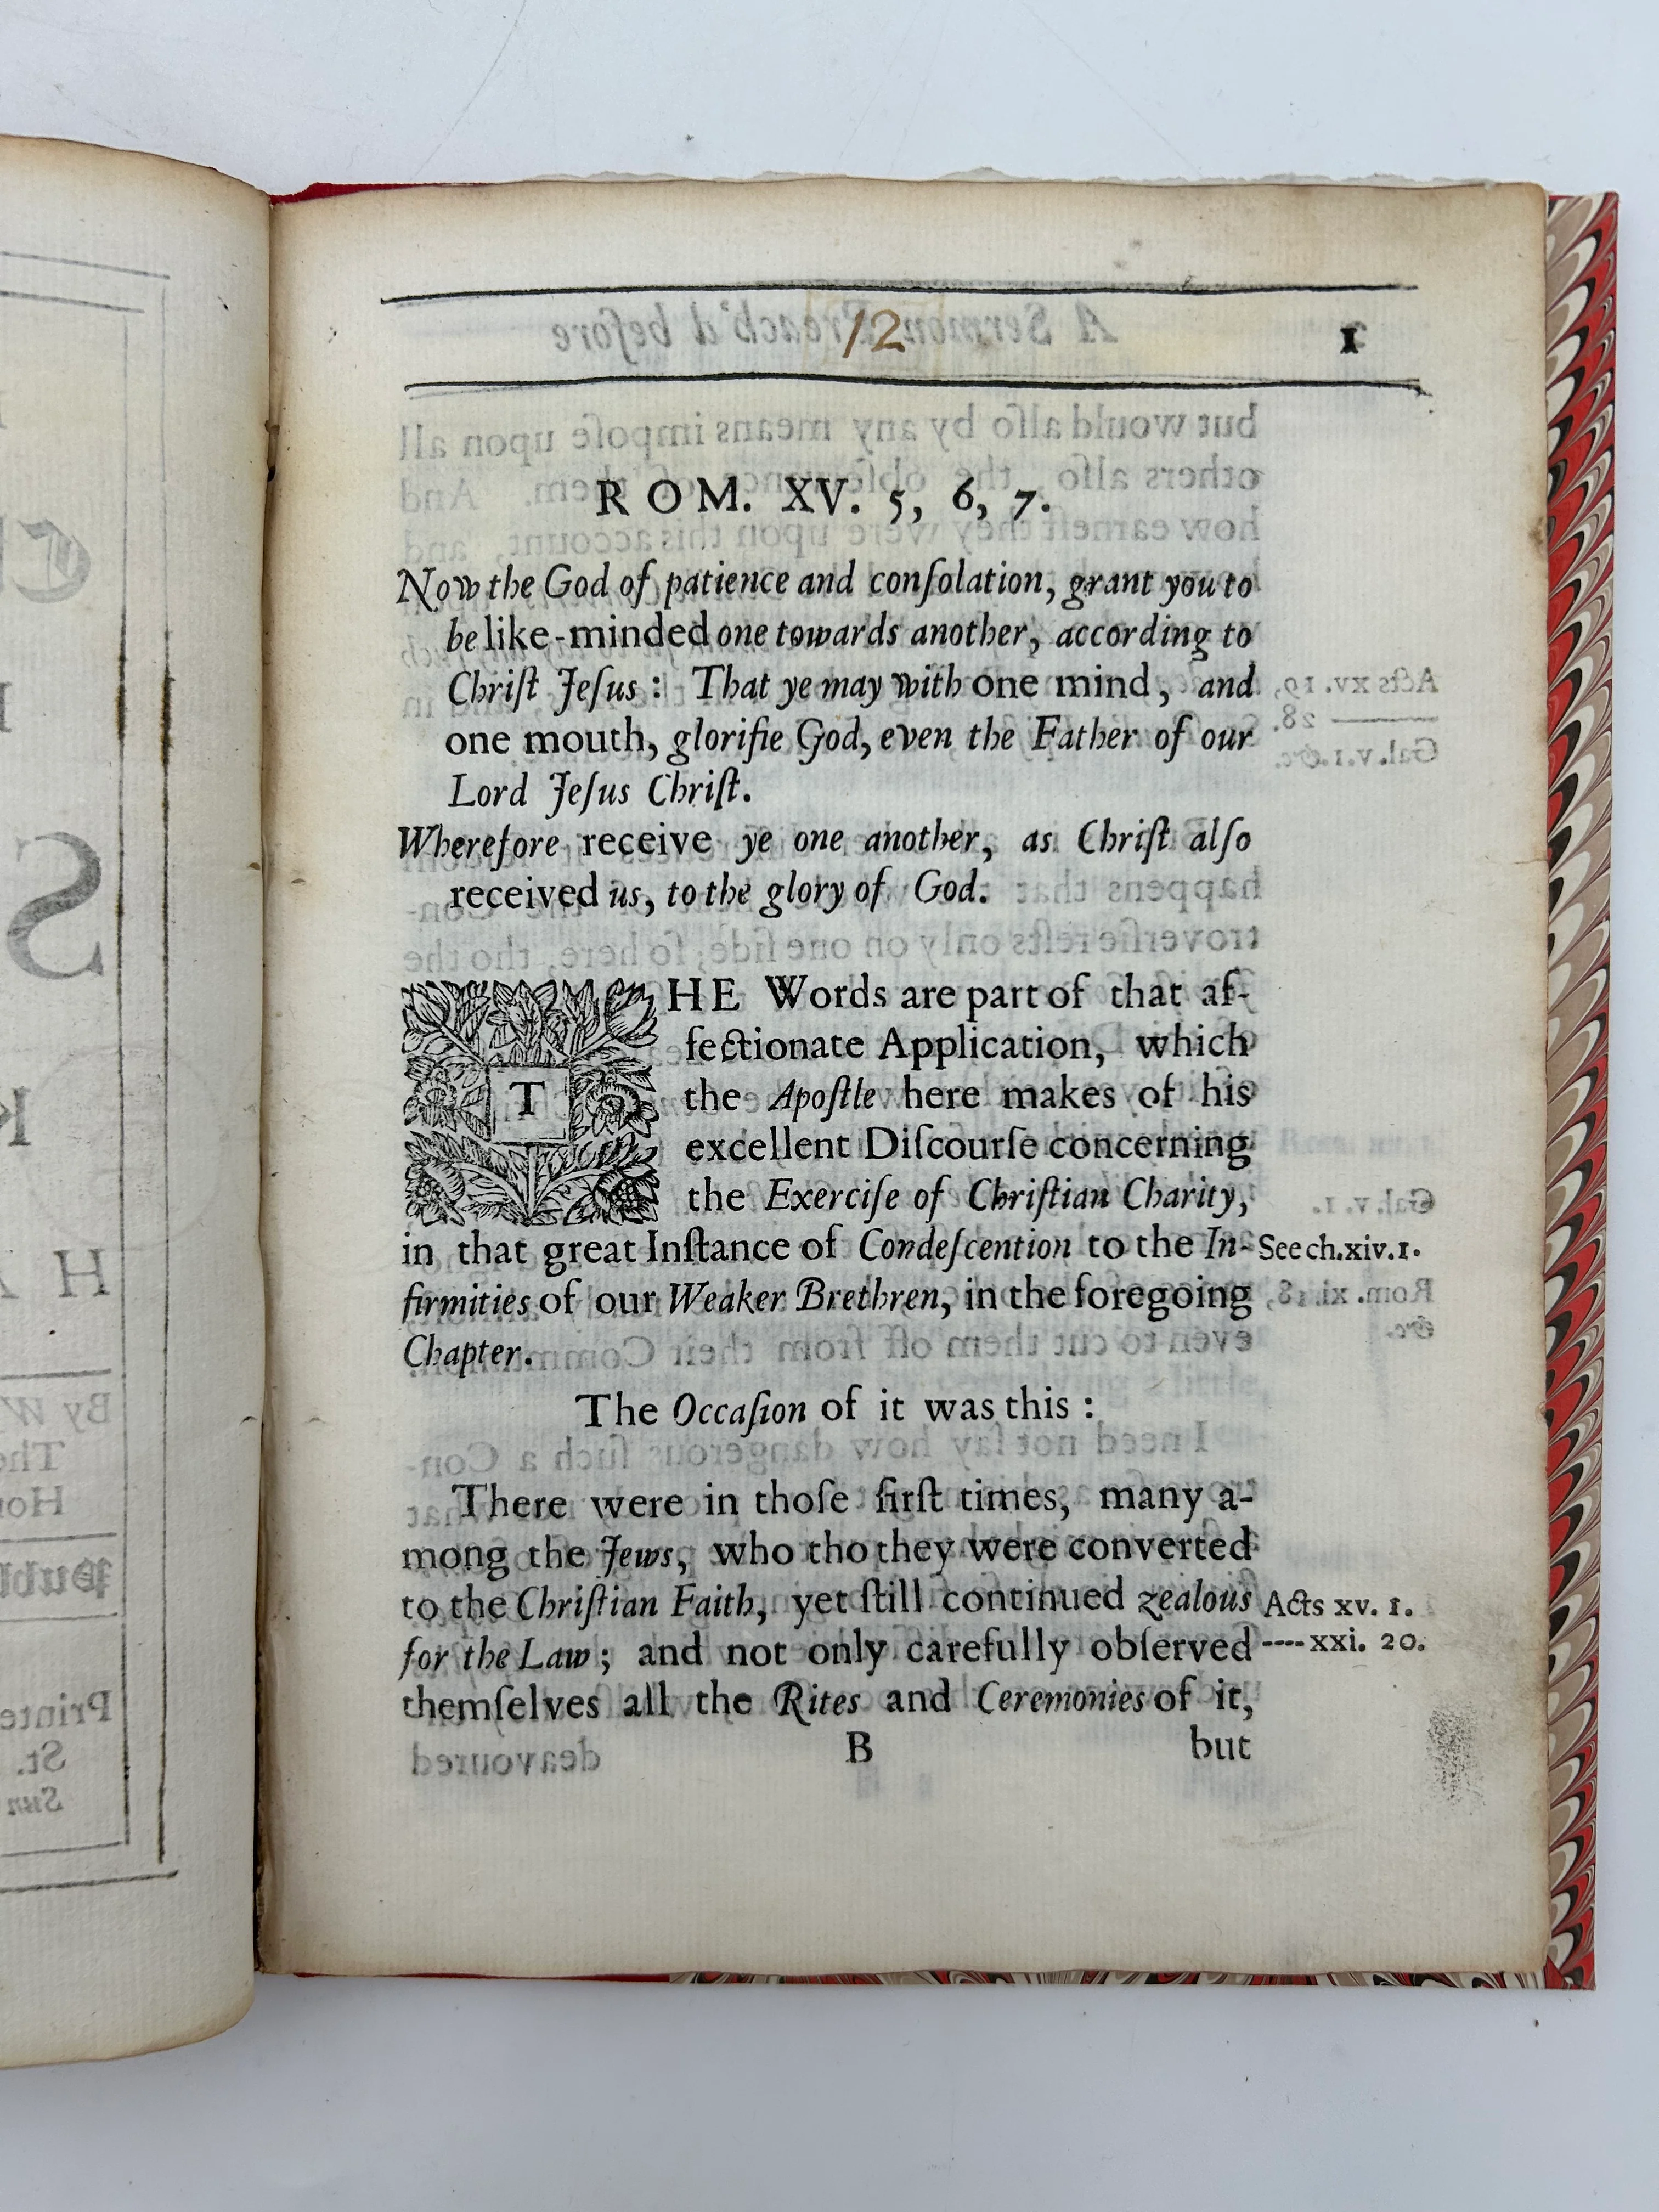 12
1
ROM. XV. 5, 6, 7.
Now the God of patience and conſolation, grant you to
be like-minded one towards another, according to
Chriſt Jeſus: That ye may with one mind, and
one mouth, glorifie God, even the Father of our
Lord Jeſus Chriſt.
Wherefore receive ye one another, as Chriſt alſo
received us, to the glory of God.
THE Words are part of that af-
fectionate Application, which
the Apoſtle here makes of his
excellent Diſcourſe concerning
the Exerciſe of Chriſtian Charity,
in that great Inſtance of Condeſcention to the In- See ch. xiv. 1.
firmities of our Weaker Brethren, in the foregoing
Chapter.
The Occaſion of it was this:
There were in thoſe firſt times, many a-
mong the Jews, who tho they were converted
to the Chriſtian Faith, yet ſtill continued zealous Acts xv. 1.
for the Law; and not only carefully obſerved ----xxi. 20.
themſelves all the Rites and Ceremonies of it,
B but